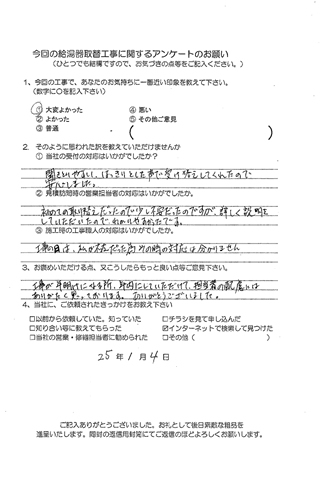 今回の給湯器取替工事に関するアンケートのお願い
（ひとつでも結構ですので、お気づきの点等をご記入ください。）
1、今回の工事で、あなたのお気持ちに一番近い印象を教えて下さい。
（数字に○を記入下さい）
① 大変よかった ④ 悪い
② よかった ⑤ その他ご意見
③ 普通 （
2、そのように思われた訳を教えていただけませんか
① 当社の受付の対応はいかがでしたか？
聞きとりやすい、はっきりとした声で受け答えしてくれたので
安心しました。
② 見積訪問時の営業担当者の対応はいかがでしたか。
初めての取り替えだったので少し不安だったのですが、詳しく説明を
していただいたので、わかりやすかったです。
③ 施工時の工事職人の対応はいかがでしたか。
工事の日は、私が不在だった為、その時の対応は分かりません
3、お褒めいただける点、又こうしたらもっと良い点等ご意見下さい。
工事が早期に
していただけて、担当者の
ありがたく思っております。ありがとうございました。
4、当社に、ご依頼されたきっかけをお教え下さい
□以前から依頼していた。知っていた □チラシを見て申し込んだ
□知り合い等に教えてもらった ☑インターネットで検索して見つけた
□当社の営業・修繕担当者に勧められた □その他（ ）
25年 1月 4日
ご記入ありがとうございました。お礼として後日素敵な粗品を
進呈いたします。同封の返信用封筒にてご返信のほどよろしくお願いします。